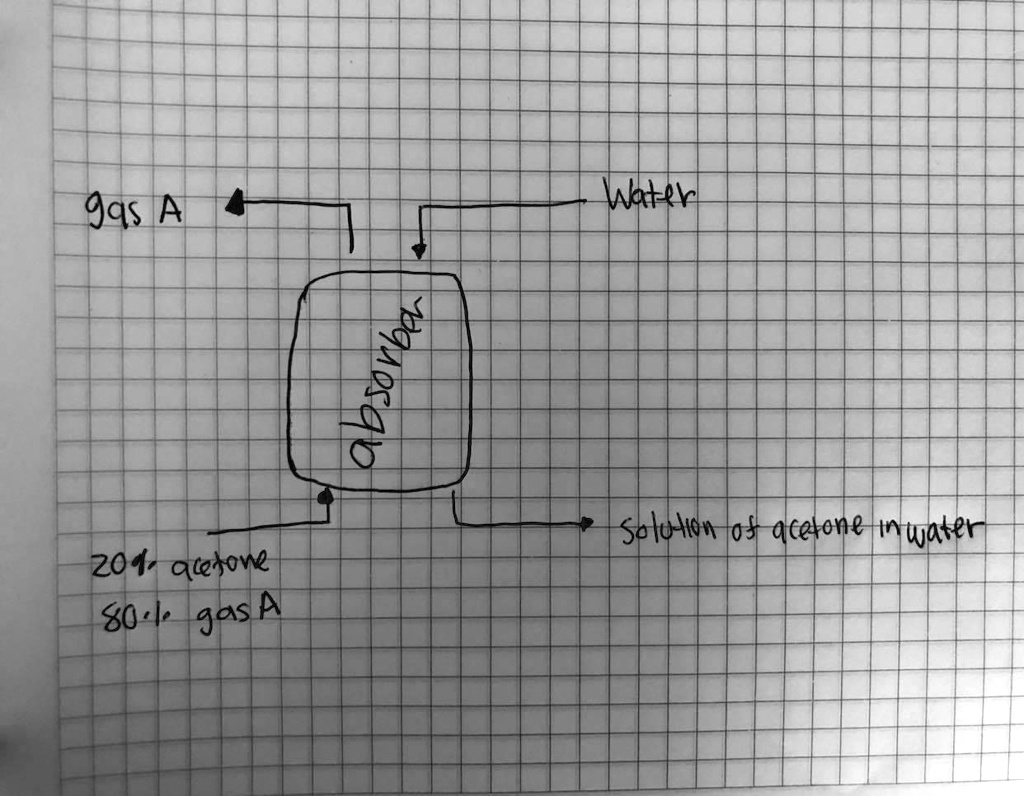 gas A
Water
absorber
solution of acetone in water
20% acetone
80% gas A